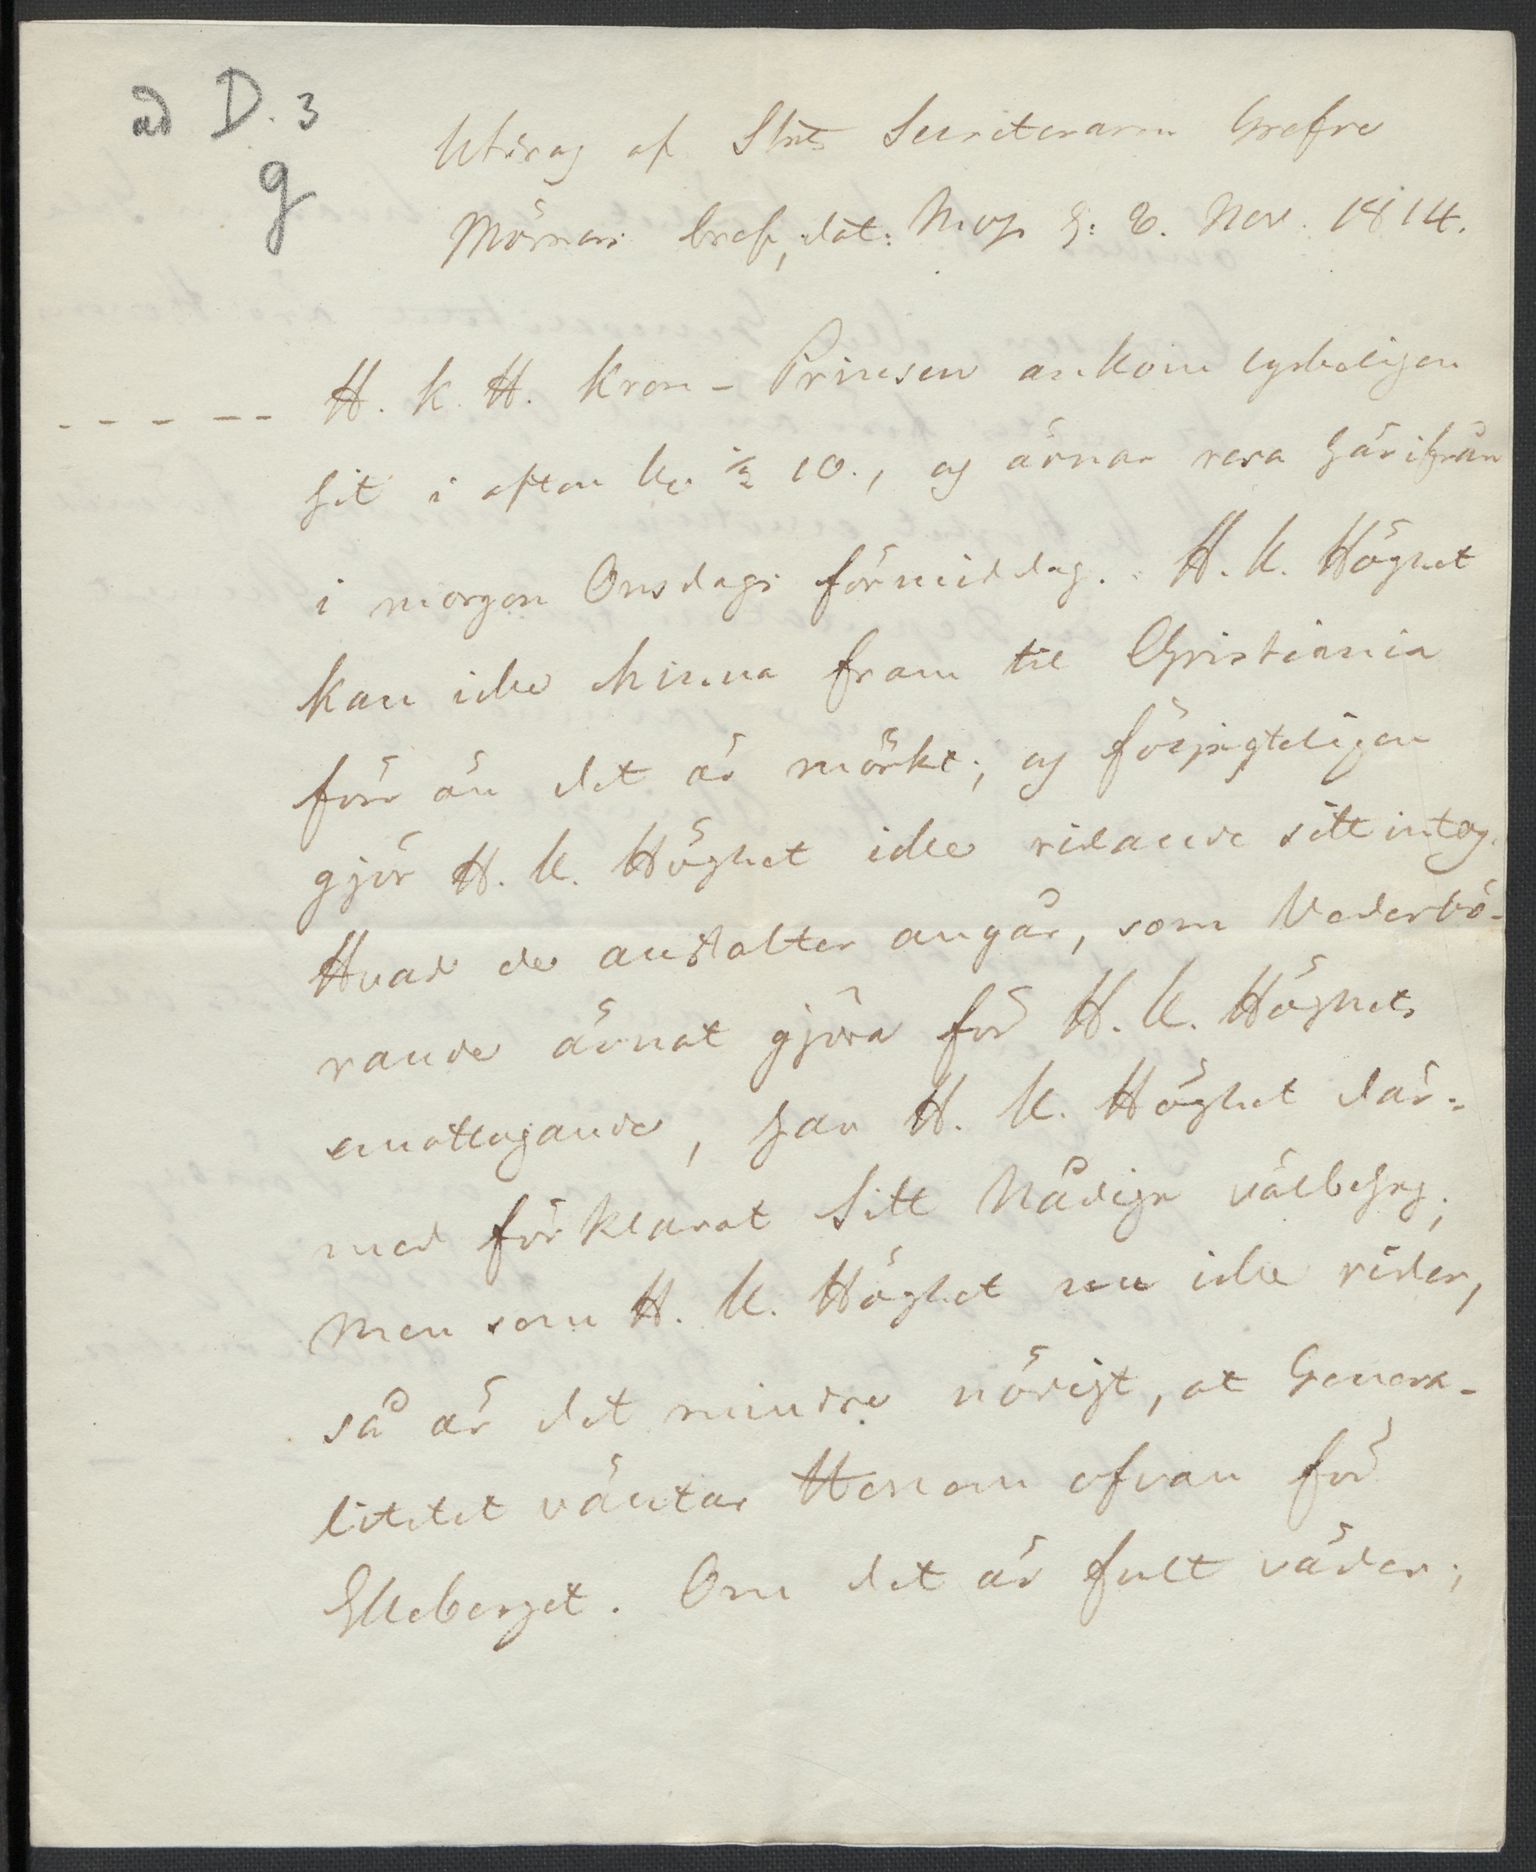 ad D. 3
g
Utdrag af Stats Secreteraren Grefve
Mörners bref, dat: Moss d: 8. Nov. 1814.
– – – – – H. K. H. Kron-Prinsen ankom lyckeligen
hit i afton kl. ½ 10., og ärnar resa härifrån
i morgon Onsdags förmiddag. H. K. Höghet
kan icke hinna fram til Christiania
förr än det är mörkt; og försigteligen
gjör H. K. Höghet icke ridande sitt intog.
Hvad de anstalter angår, som Vederbö-
rande ärnat gjöra för H. K. Höghets
emottagande, har H. K. Höghet där-
med förklarat Sitt Nådiga välbehag;
men som H. K. Höghet nu icke rider,
så är det mindre nödigt, at Genera-
litetet väntar Honom ofvan för
Ekeberget. Om det är fult väder;